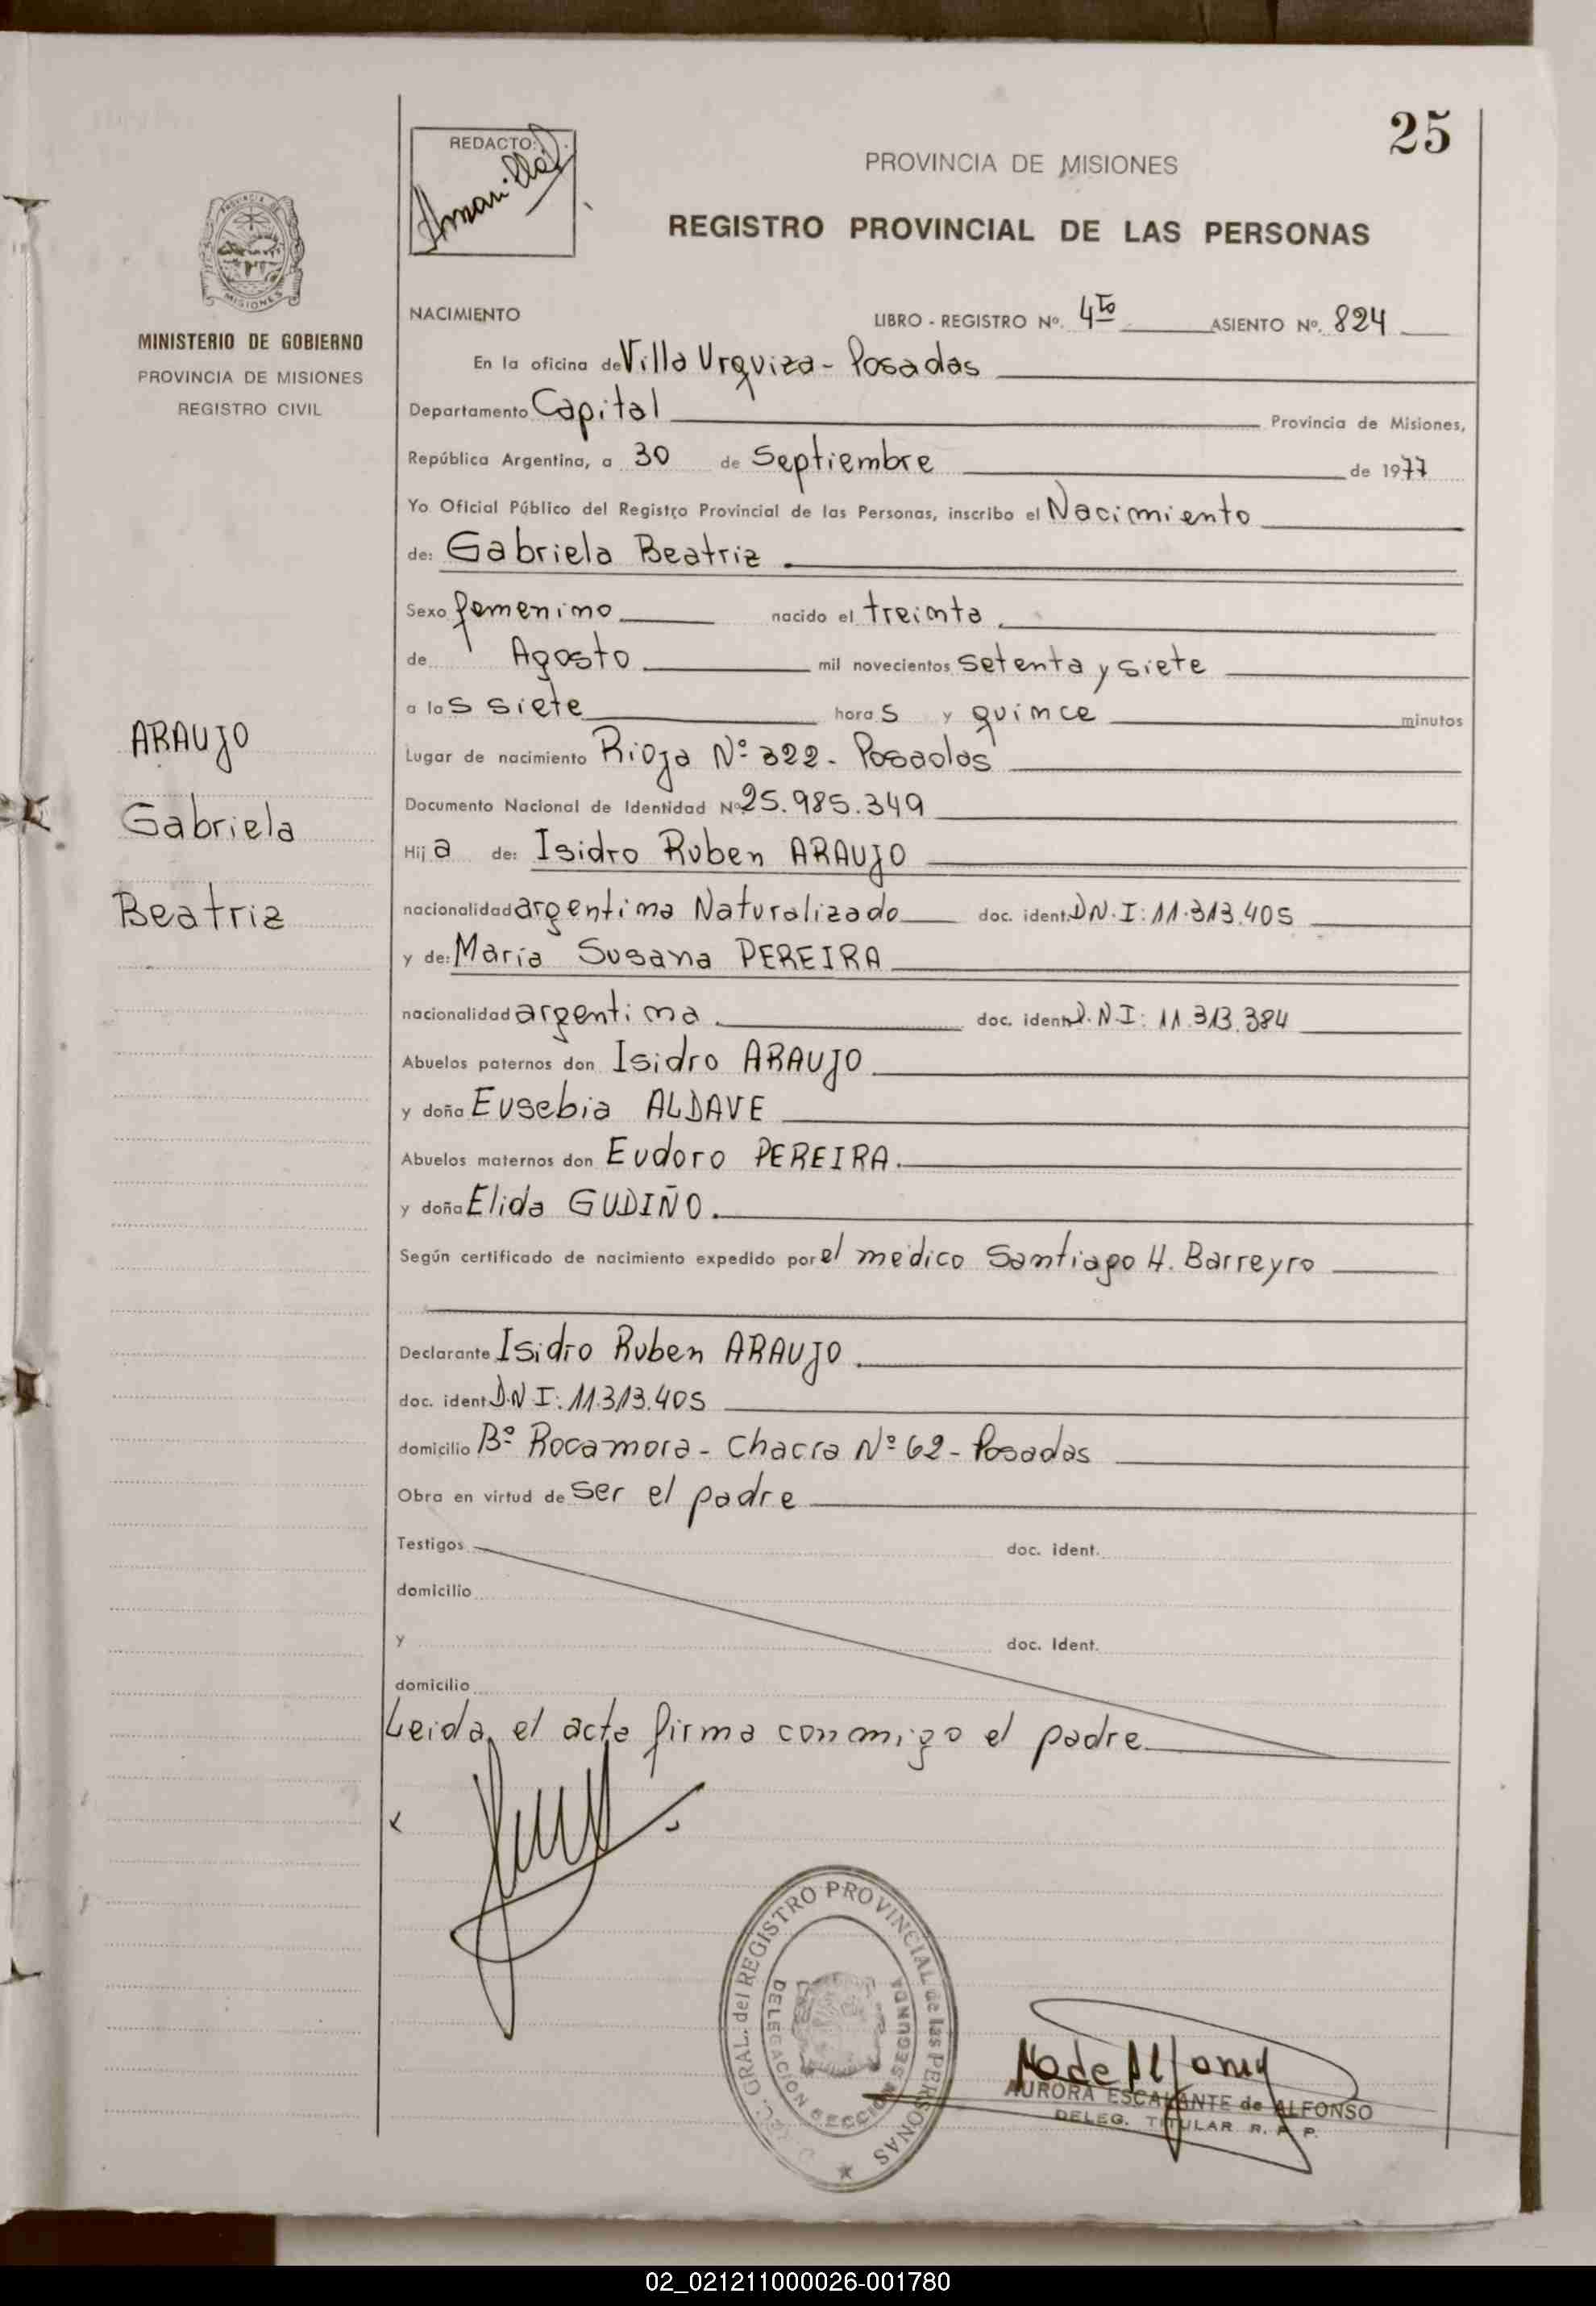 25
REDACTO:
Amarilla
PROVINCIA DE MISIONES
REGISTRO PROVINCIAL DE LAS PERSONAS
PROVINCIA DE
MISIONES
MINISTERIO DE GOBIERNO
PROVINCIA DE MISIONES
REGISTRO CIVIL
NACIMIENTO LIBRO - REGISTRO Nº. 4to ASIENTO Nº. 824
En la oficina de Villa Urquiza - Posadas
Departamento Capital Provincia de Misiones,
República Argentina, a 30 de Septiembre de 1977
Yo Oficial Público del Registro Provincial de las Personas, inscribo el Nacimiento
de: Gabriela Beatriz
Sexo femenino nacido el treinta
de Agosto mil novecientos setenta y siete
a las siete horas y quince minutos
Lugar de nacimiento Rioja Nº 322 - Posadas
Documento Nacional de Identidad Nº 25.985.349
Hija de: Isidro Ruben ARAUJO
nacionalidad argentino Naturalizado doc. ident. D.N.I: 11.313.405
y de: María Susana PEREIRA
nacionalidad argentina doc. ident. D.N.I: 11.313.384
Abuelos paternos don Isidro ARAUJO
y doña Eusebia ALDAVE
Abuelos maternos don Eudoro PEREIRA.
y doña Elida GUDIÑO.
Según certificado de nacimiento expedido por el médico Santiago H. Barreyro
Declarante Isidro Ruben ARAUJO
doc. ident. D.N.I: 11.313.405
domicilio Bº Rocamora - Chacra Nº 62 - Posadas
Obra en virtud de ser el padre
Testigos doc. ident.
domicilio
y doc. Ident.
domicilio
Leida el acta firma conmigo el padre
ARAUJO
Gabriela
Beatriz
GRAL. del REGISTRO PROVINCIAL de las PERSONAS
DELEGACION SECCION SEGUNDA
AURORA ESCALANTE de ALFONSO
DELEG. TITULAR R. P. P.
02_021211000026-001780